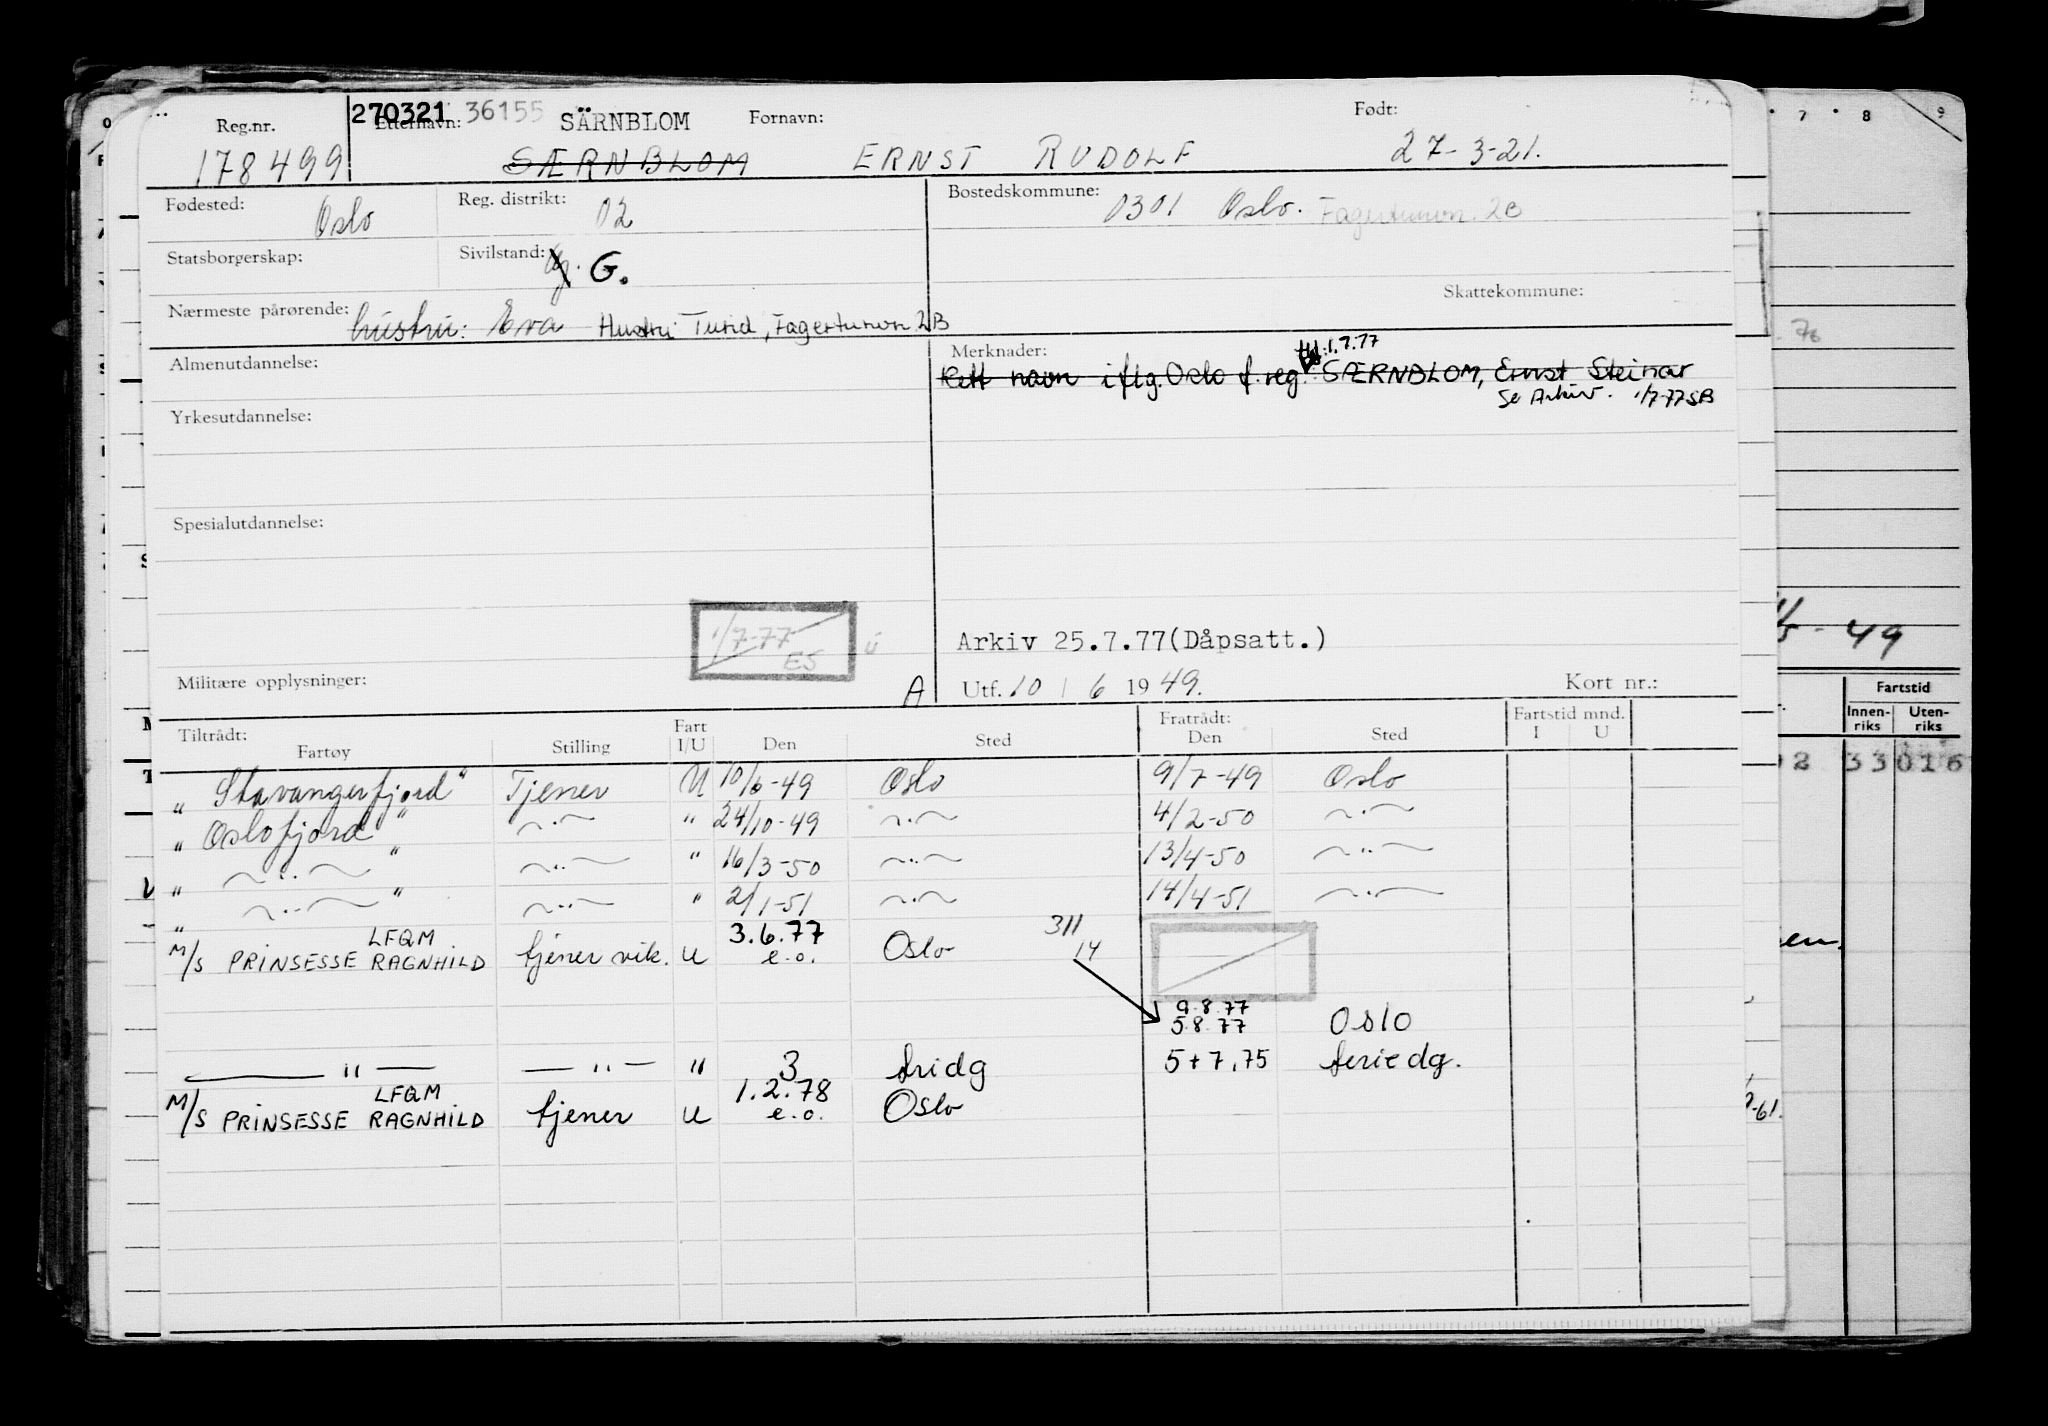 Reg.nr. 270321 36155 Etternavn: SÄRNBLOM Fornavn: Født:
178499 SÆRNBLOM ERNST RUDOLF 27-3-21.
Fødested: Oslo Reg. distrikt: 02 Bostedskommune: 0301 Oslo. Fagertunvn. 2B
Statsborgerskap: Sivilstand: G.
Skattekommune:
Nærmeste pårørende: hustru: Eva Hustru: Turid, Fagertunvn 2B
Almenutdannelse: Merknader: 1.7.77
Rett navn iflg. Oslo f.reg.: SÆRNBLOM, Ernst Steinar
Se Arkiv. 1/7-77 SB
Yrkesutdannelse:
Spesialutdannelse:
1/7-77
ES
Arkiv 25.7.77(Dåpsatt.)
Militære opplysninger: A Utf. 10 / 6 1949. Kort nr.:
Tiltrådt: Fart Fratrådt: Fartstid mnd.
Fartøy Stilling I/U Den Sted Den Sted I U
" Stavangerfjord" Tjener U 10/6-49 Oslo 9/7-49 Oslo
" Oslofjord" -"- " 24/10-49 -"- 4/2-50 -"-
" -"- " -"- " 16/3-50 -"- 13/4-50 -"-
" -"- " -"- " 2/1-51 -"- 14/4-51 -"-
LFQM 3.6.77 311
M/S PRINSESSE RAGNHILD tjener vik. U e.o. Oslo 14
9.8.77
5.8.77 Oslo
-"- -"- " 3 fridg 5+7,75 feriedg.
LFQM 1.2.78
M/S PRINSESSE RAGNHILD tjener U e.o. Oslo
7 8 9
49
Fartstid
Innen-riks Uten-riks
2 33016
en.
-61.